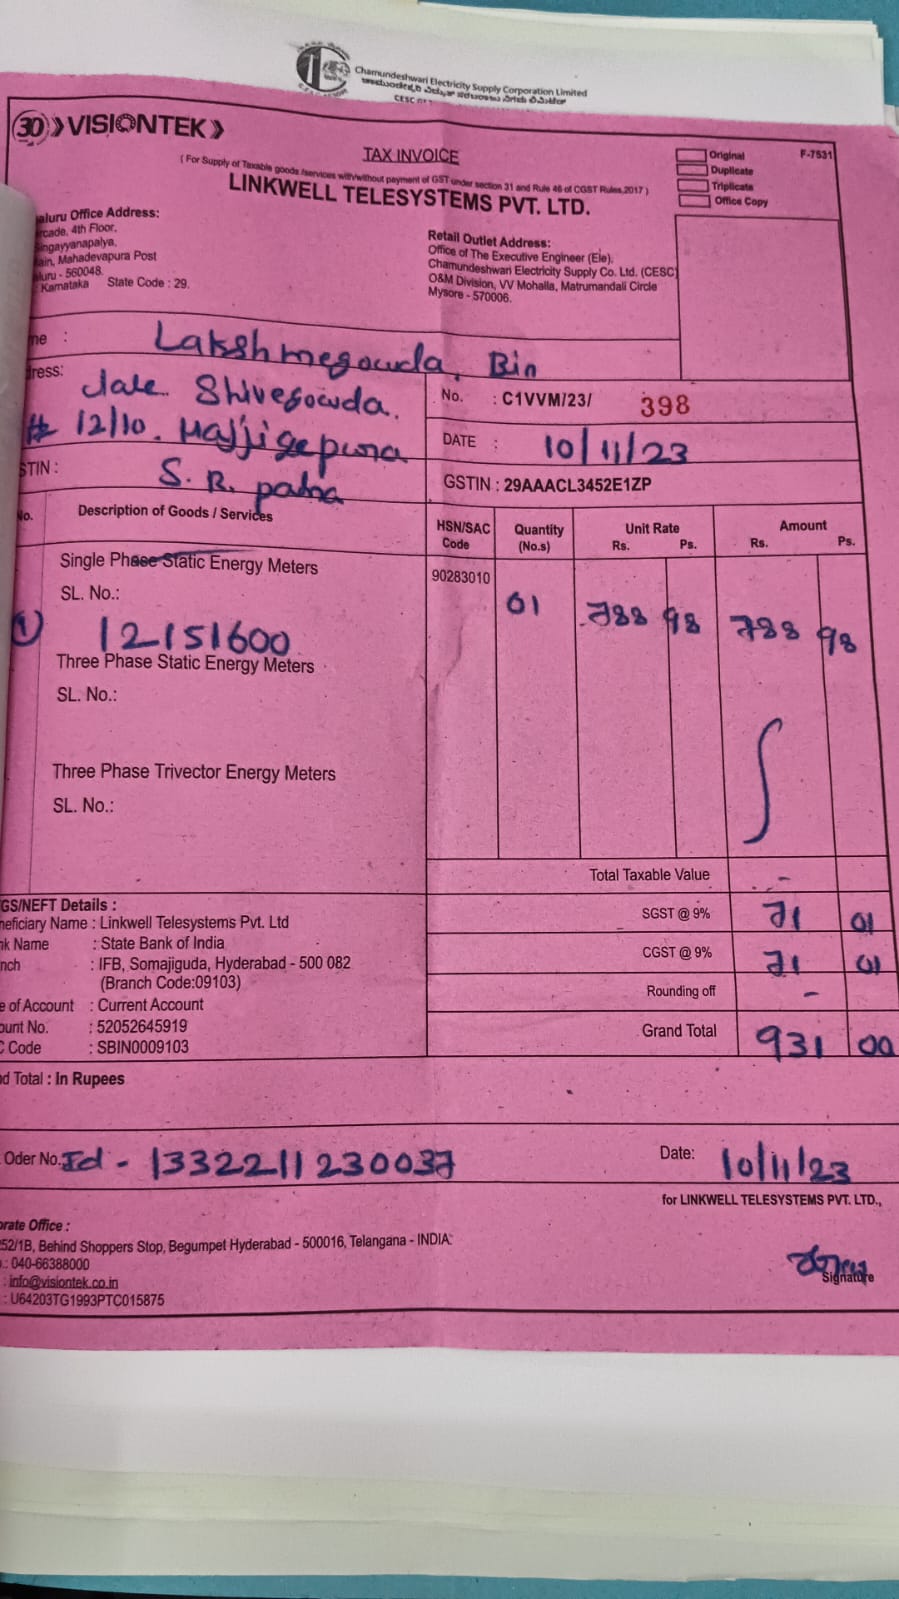 Chamundeshwari Electricity Supply Corporation Limited
30 VISIONTEK
TAX INVOICE
(For Supply of Taxable goods /services with/without payment of GST under section 31 and Rule 46 of CGST Rules,2017)
LINKWELL TELESYSTEMS PVT. LTD.
Original
Duplicate
Triplicate
Office Copy
F-7531
aluru Office Address:
rcade, 4th Floor,
ingayyanapalya,
ain, Mahadevapura Post
luru - 560048.
Karnataka State Code : 29.
Retail Outlet Address:
Office of The Executive Engineer (Ele),
Chamundeshwari Electricity Supply Co. Ltd. (CESC)
O&M Division, VV Mohalla, Matrumandali Circle
Mysore - 570006.
me : Lakshmegowda, Bin
ress: late Shivegowda.
# 12/10. Hajjigepura
STIN : S. R. patna
No. : C1VVM/23/ 398
DATE : 10/11/23
GSTIN : 29AAACL3452E1ZP
No. Description of Goods / Services HSN/SAC Code Quantity (No.s) Unit Rate Rs. Ps. Amount Rs. Ps.
Single Phase Static Energy Meters 90283010
SL. No.: 01 788 98 788 98
1 12151600
Three Phase Static Energy Meters
SL. No.:
Three Phase Trivector Energy Meters
SL. No.:
Total Taxable Value -
SGST @ 9% 71 01
CGST @ 9% 71 01
Rounding off -
Grand Total 931 00
GS/NEFT Details :
neficiary Name : Linkwell Telesystems Pvt. Ltd
nk Name : State Bank of India
nch : IFB, Somajiguda, Hyderabad - 500 082
(Branch Code:09103)
e of Account : Current Account
ount No. : 52052645919
C Code : SBIN0009103
d Total : In Rupees
Oder No. Id - 1332211230037
Date: 10/11/23
for LINKWELL TELESYSTEMS PVT. LTD.,
Signature
orate Office :
252/1B, Behind Shoppers Stop, Begumpet Hyderabad - 500016, Telangana - INDIA.
.: 040-66388000
: info@visiontek.co.in
: U64203TG1993PTC015875